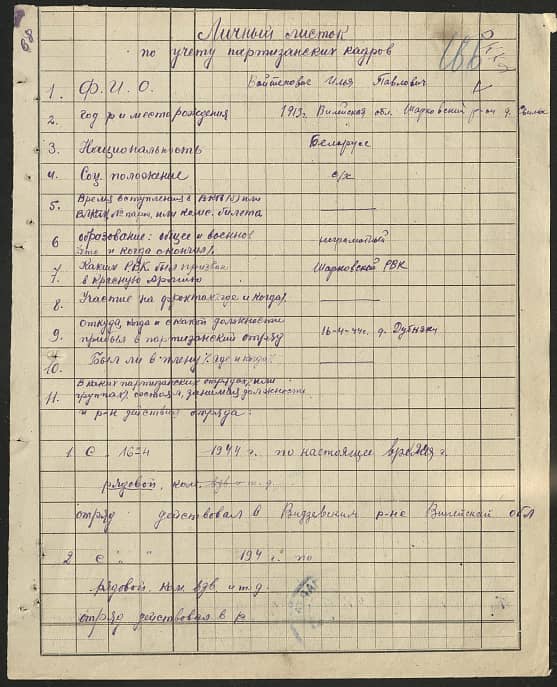 Личный листок
по учету партизанских кадров
1. Ф. И. О. Войтехович Илья Павлович
2. год р и место рождения 1913г. Вилейской обл. Шарковский р-он д.
3. Национальность Беларус
4. Соц. положение с/х
5. Время вступления в ВКП(б) или
ВЛКСМ № парт. или комс. билета
6 образование: общее и военное
что и когда окончил. неграмотный
7. Каким РВК был призван
в красную Армию Шарковской РВК
8. Участие на фронтах где и когда
9. Откуда, когда и с какой должности
прибыл в партизанский отряд 16-4-44г. д. Дубняки
10. Был ли в плену где и когда
11. В каких партизанских отрядах или
группах состоял, занимал должности
и р-н действия отряда:
1 С 16-4 1944 г. по настоящее время г.
рядовой. ком. взв и т.д.
отряд действовал в Видзевским р-не Вилейской обл
2 с " " 194 г. по
рядовой. ком. взв. и т.д.
отряд действовал в р